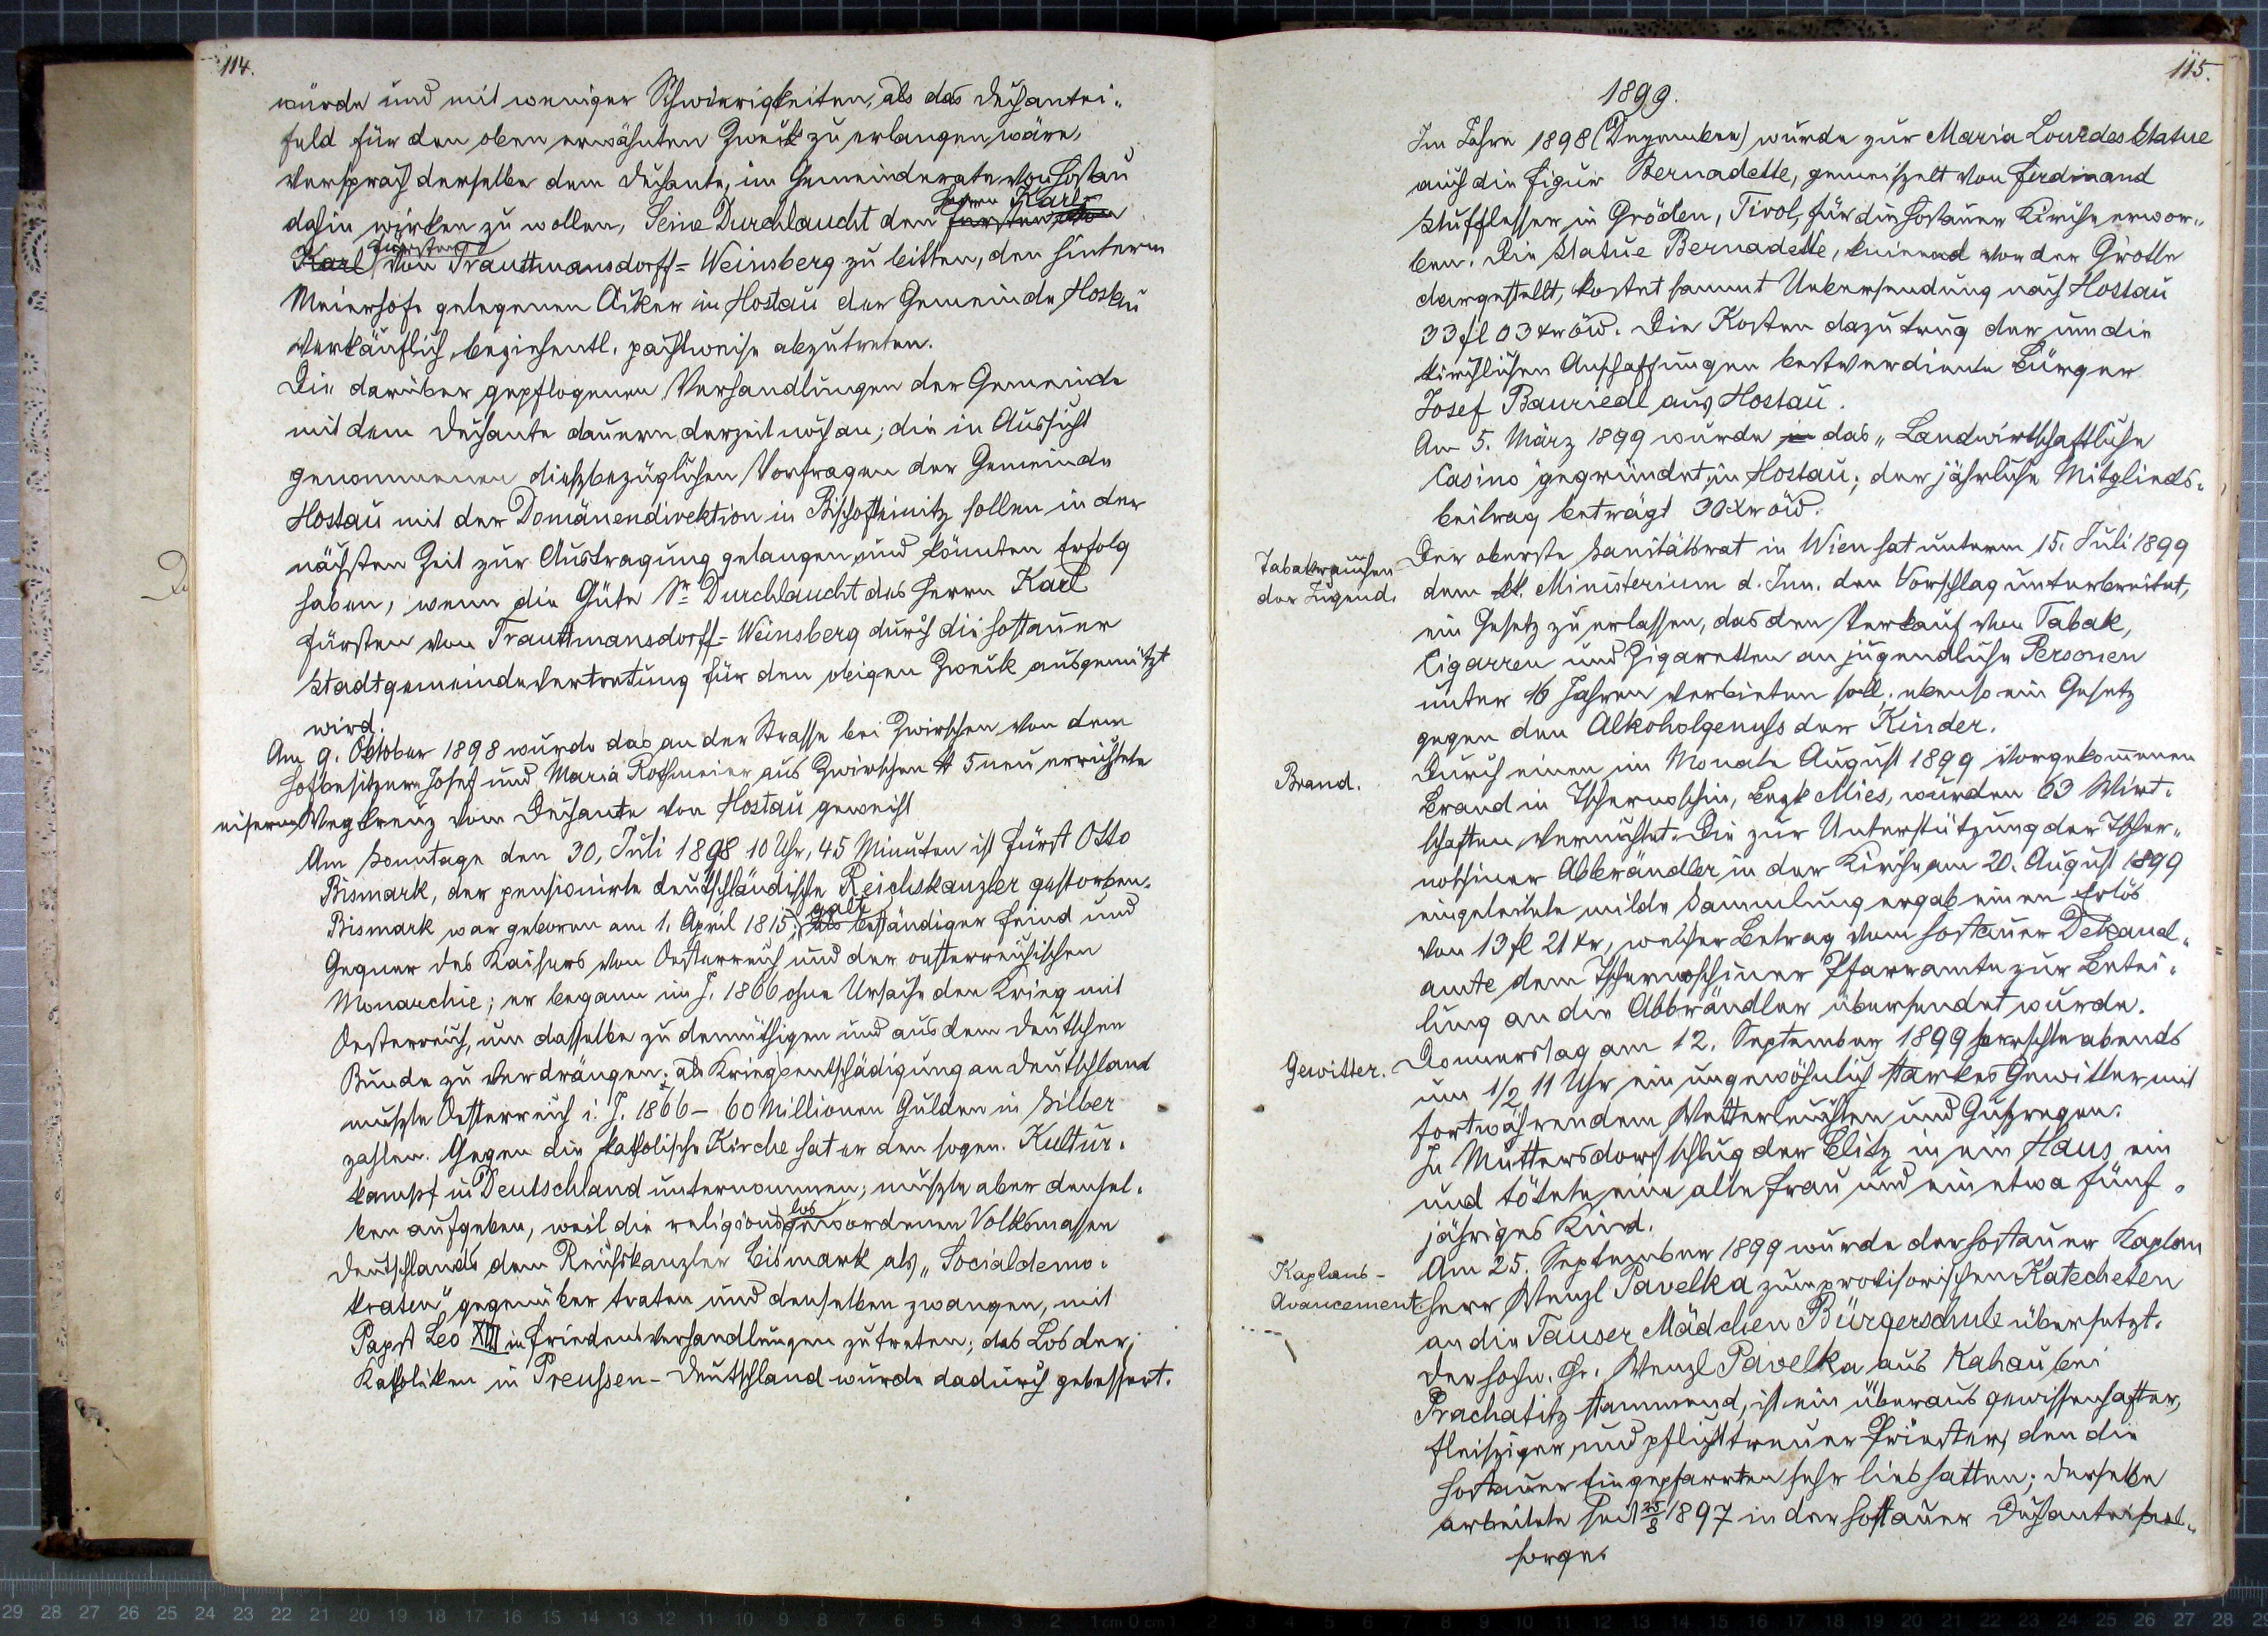 114.
würde und mit weniger Schwierigkeiten, als das Dechantei-
feld für den oben erwähnten Zweck zu erlangen wäre,
versprach derselbe dem Dechante, im Gemeinderate von Hostau
dahin wirken zu wollen, Seine Durchlaucht den Herrn Karl Fürsten von
Karl Fürsten von Trauttmansdorff-Weinsberg zu bitten, den hinterm
Meierhofe gelegenen Acker in Hostau der Gemeinde Hostau
verkäuflich, beziehentl. pachtweise abzutreten.
Die darüber gepflogenen Verhandlungen der Gemeinde
mit dem Dechante dauern derzeit noch an; die in Aussicht
genommenen diesbezüglichen Vorfragen der Gemeinde
Hostau mit der Domänendirektion in Bischofteinitz sollen in der
nächsten Zeit zur Austragung gelangen und könnten Erfolg
haben, wenn die Güte Sr Durchlaucht des Herrn Karl
Fürsten von Trauttmansdorff-Weinsberg durch die Hostauer
Stadtgemeindevertretung für den obigen Zweck ausgenützt
wird.
Am 9. Oktober 1898 wurde das an der Strasse bei Zwirschen von dem
Hofbesitzern Josef und Maria Rothmeier aus Zwirschen № 5 neu errichtete
eiserne Wegkreuz vom Dechante von Hostau geweiht
Am Sonntage den 30. Juli 1898 10 Uhr, 45 Minuten ist Fürst Otto
Bismark, der pensionirte deutschländische Reichskanzler gestorben.
Bismark war geboren am 1. April 1815; galt als beständiger Feind und
Gegner des Kaisers von Oesterreich und der oesterreichischen
Monarchie; er begann im J. 1866 ohne Ursache den Krieg mit
Oesterreich, um dasselbe zu demüthigen und aus dem deutschen
Bunde zu verdrängen; als Kriegsentschädigung an Deutschland
muszte Oesterreich i. J. 1866 – 60 Millionen Gulden in Silber
zahlen. Gegen die katholische Kirche hat er den sogen. Kultur-
kampf in Deutschland unternommen; muszte aber densel-
ben aufgeben, weil die religionslos gewordenen Volksmassen
Deutschlands dem Reichskanzler Bismark als „Socialdemo-
kraten" gegenüber traten und denselben zwangen, mit
Papst Leo XIII in Friedensverhandlungen zu treten; das Los der
Katholiken in Preussen-Deutschland wurde dadurch gebessert.
115.
1899.
Im Jahre 1898 (Dezember) wurde zur Maria Lourdes Statue
auch die Figur Bernadette, gemeiszelt von Ferdinand
Stufflesser in Gröden, Tirol, für die Hostauer Kirche erwor-
ben. Die Statue Bernadette, knieend vor der Grotte
dargestellt, kostet sammt Uebersendung nach Hostau
33 fl 03 kr öW. Die Kosten dazu trug der um die
kirchlichen Anschaffungen bestverdiente Bürger
Josef Bauriedl aus Hostau.
Am 5. März 1899 wurde in das „Landwirtschaftliche
Casino" gegründet, in Hostau; der jährliche Mitglieds-
beitrag beträgt 30 kr öW.
Tabakrauchen
der Jugend.
Der oberste Sanitätsrat in Wien hat unterm 15. Juli 1899
dem kk. Ministerium d. Inn. den Vorschlag unterbreitet,
ein Gesetz zu erlassen, das den Verkauf von Tabak,
Cigarren und Zigaretten an jugendliche Personen
unter 16 Jahren verbieten soll, ebenso ein Gesetz
gegen den Alkoholgenuss der Kinder.
Brand.
Durch einen im Monate August 1899 vorgekommenen
Brand in Tschernoschin, Bezk Mies, wurden 63 Wirt-
schaften vernichtet. Die zur Unterstützung der Tscher-
noschiner Abbrändler in der Kirche am 20. August 1899
eingeleitete milde Sammlung ergab einen Erlös
von 13 fl 21 kr, welcher Betrag vom Hostauer Dekanal-
amte dem Tschernoschiner Pfarramte zur Betei-
lung an die Abbrändler übersendet wurde.
Gewitter.
Donnerstag am 12. September 1899 herrschte abends
um 1/2 11 Uhr ein ungewöhnlich starkes Gewitter mit
fortwährendem Wetterleuchten und Guszregen.
In Muttersdorf schlug der Blitz in ein Haus ein
und tötete eine alte Frau und ein etwa fünf-
jähriges Kind.
Kaplans-
Avancement
Am 25. September 1899 wurde der Hostauer Kaplan
Herr Wenzl Pavelka zum provisorischen Katecheten
an die Tauser Mädchen Bürgerschule übersetzt.
Der hochw. Hr. Wenzl Pavelka aus Kahau bei
Prachatitz stammend, ist ein überaus gewissenhafter,
fleisziger, und pflichttreuer Priester, den die
Hostauer Eingepfarrten sehr lieb hatten; derselbe
arbeitete seit 25/8 1897 in der Hostauer Dechanteiseel-
sorge.